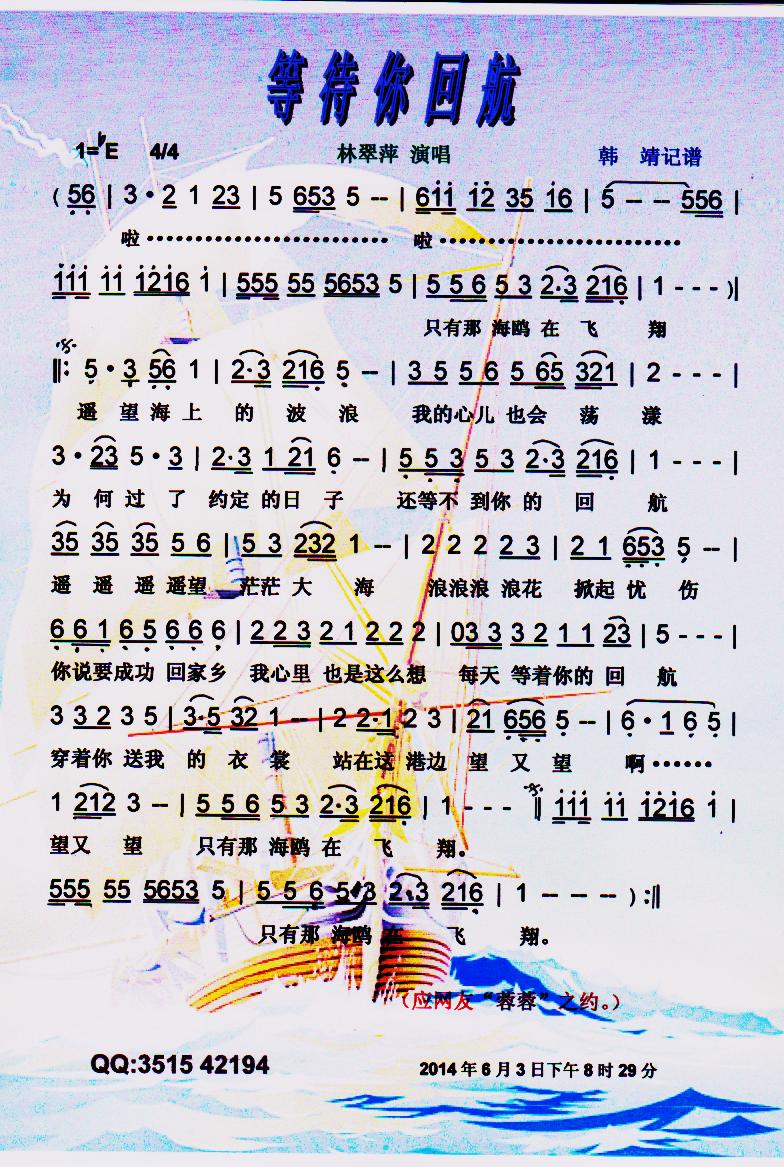 等待你回航
1=♭E 4/4 林翠萍 演唱 韩 靖记谱
( 56 | 3 · 2 1 23 | 5 653 5 -- | 611 12 35 16 | 5 - - 556 |
啦························ 啦························
111 11 1216 1 | 555 55 5653 5 | 5 5 6 5 3 2·3 216 | 1 - - - )‖
只有那 海鸥 在 飞 翔
‖: 5 · 3 56 1 | 2·3 216 5 -- | 3 5 5 6 5 65 321 | 2 - - - |
遥 望 海 上 的 波 浪 我的心儿 也会 荡 漾
3 · 23 5 · 3 | 2·3 1 21 6 -- | 5 5 3 5 3 2·3 216 | 1 - - - |
为 何 过 了 约定 的日 子 还等不 到你 的 回 航
35 35 35 5 6 | 5 3 232 1 -- | 2 2 2 2 3 | 2 1 653 5 -- |
遥 遥 遥 遥望 茫茫 大 海 浪浪浪 浪花 掀起 忧 伤
6 6 1 6 5 6 6 6 | 2 2 3 2 1 2 2 2 | 03 3 3 2 1 1 23 | 5 - - - |
你说要成功 回家乡 我心里 也是这么想 每天 等着你的 回 航
3 3 2 3 5 | 3·5 32 1 -- | 2 2·1 2 3 | 21 656 5 -- | 6 · 1 6 5 |
穿着你 送我 的 衣 裳 站在这 港边 望 又 望 啊······
1 212 3 -- | 5 5 6 5 3 2·3 216 | 1 - - - ‖ 111 11 1216 1 |
望又 望 只有那 海鸥 在 飞 翔。
555 55 5653 5 | 5 5 6 5·3 2·3 216 | 1 - - - ) :‖
只有那 海鸥 在 飞 翔。
（应网友“蓉蓉”之约。）
QQ:3515 42194 2014 年 6 月 3 日下午 8 时 29 分